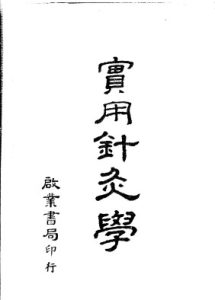 實用針灸學
啟業書局印行